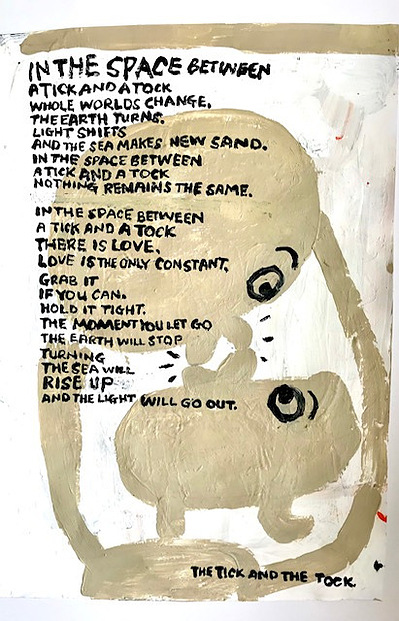 IN THE SPACE BETWEEN
A TICK AND A TOCK
WHOLE WORLDS CHANGE,
THE EARTH TURNS.
LIGHT SHIFTS
AND THE SEA MAKES NEW SAND.
IN THE SPACE BETWEEN
A TICK AND A TOCK
NOTHING REMAINS THE SAME.
IN THE SPACE BETWEEN
A TICK AND A TOCK
THERE IS LOVE,
LOVE IS THE ONLY CONSTANT,
GRAB IT
IF YOU CAN.
HOLD IT TIGHT.
THE MOMENT YOU LET GO
THE EARTH WILL STOP
TURNING
THE SEA WILL
RISE UP
AND THE LIGHT WILL GO OUT.
THE TICK AND THE TOCK.